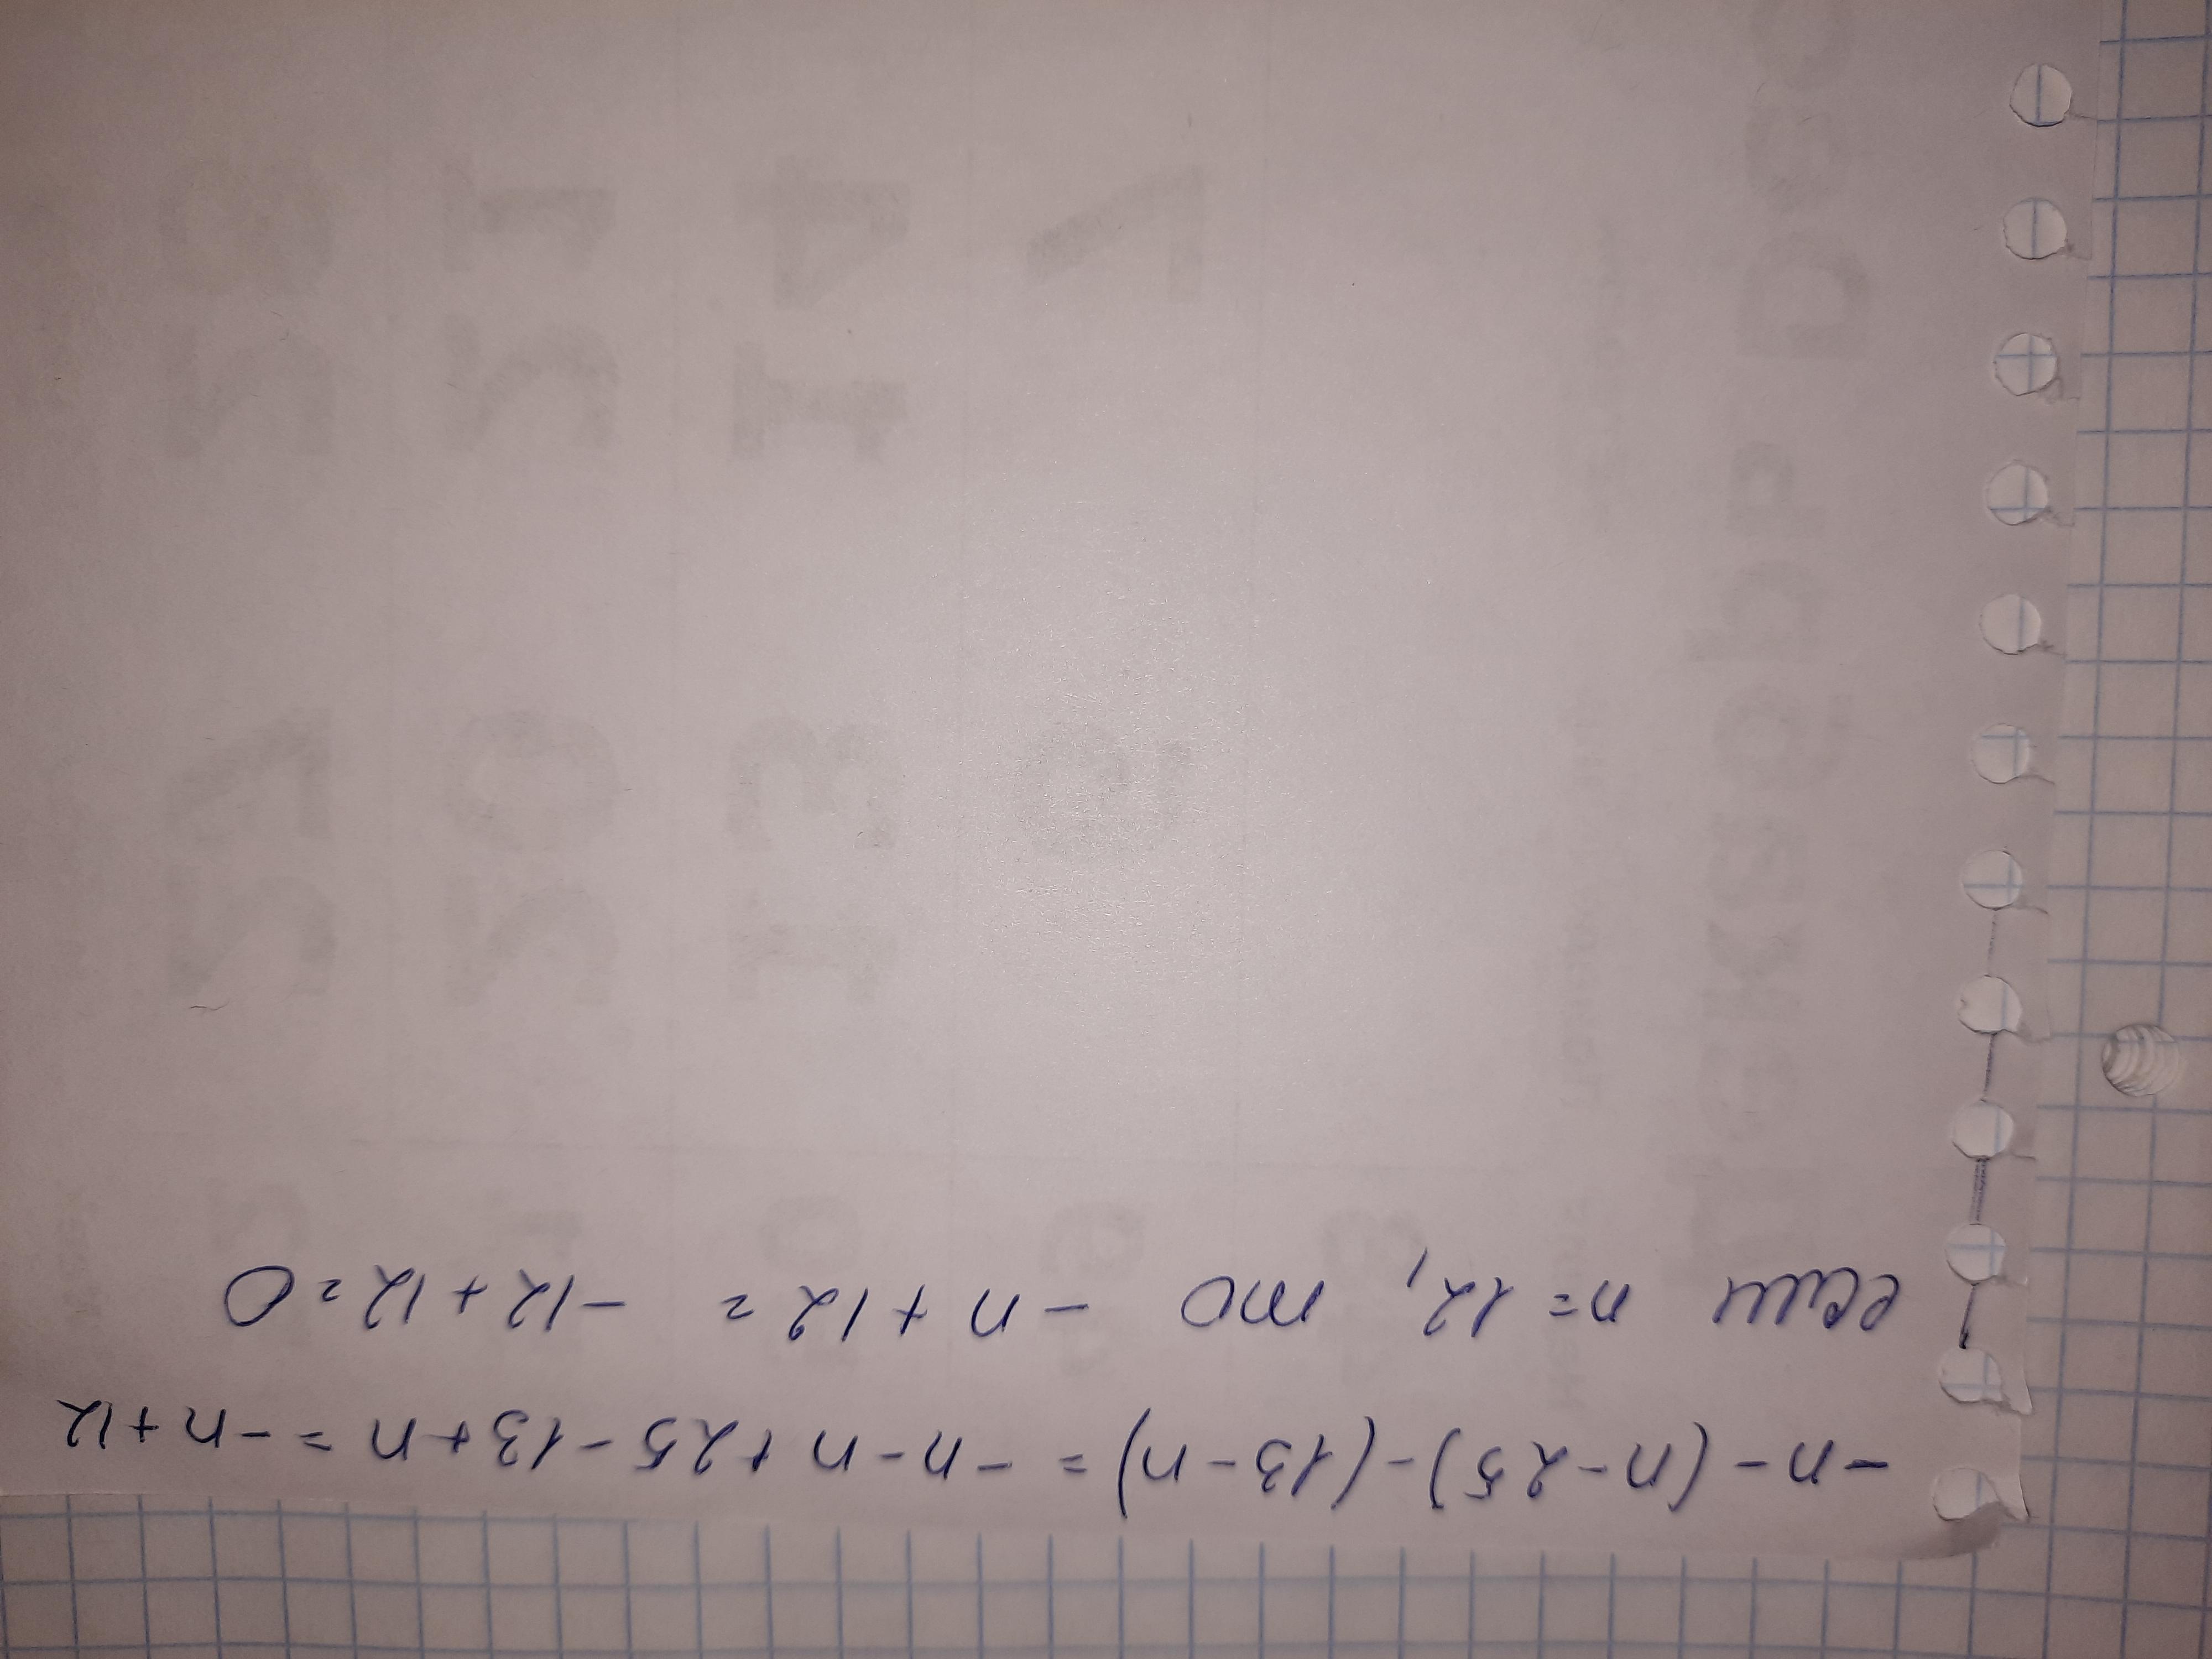 -n-(n-25)-(13-n)=-n-n+25-13+n=-n+12
если n=12, то -n+12= -12+12=0